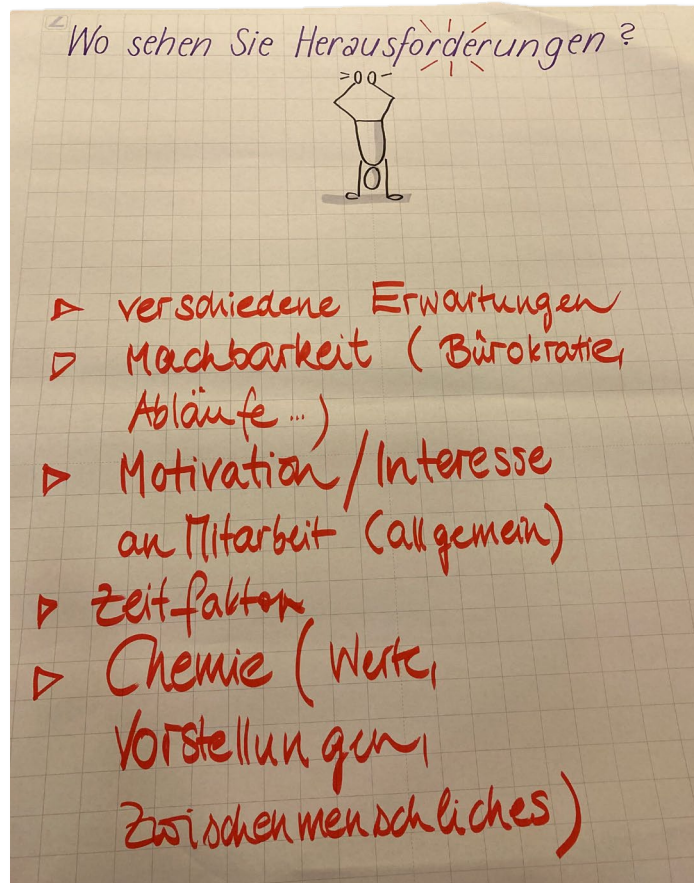 Wo sehen Sie Herausforderungen?
▷ verschiedene Erwartungen
▷ Machbarkeit (Bürokratie,
Abläufe...)
▷ Motivation/Interesse
an Mitarbeit (allgemein)
▷ Zeitfaktor
▷ Chemie (Werte,
Vorstellungen,
Zwischenmenschliches)